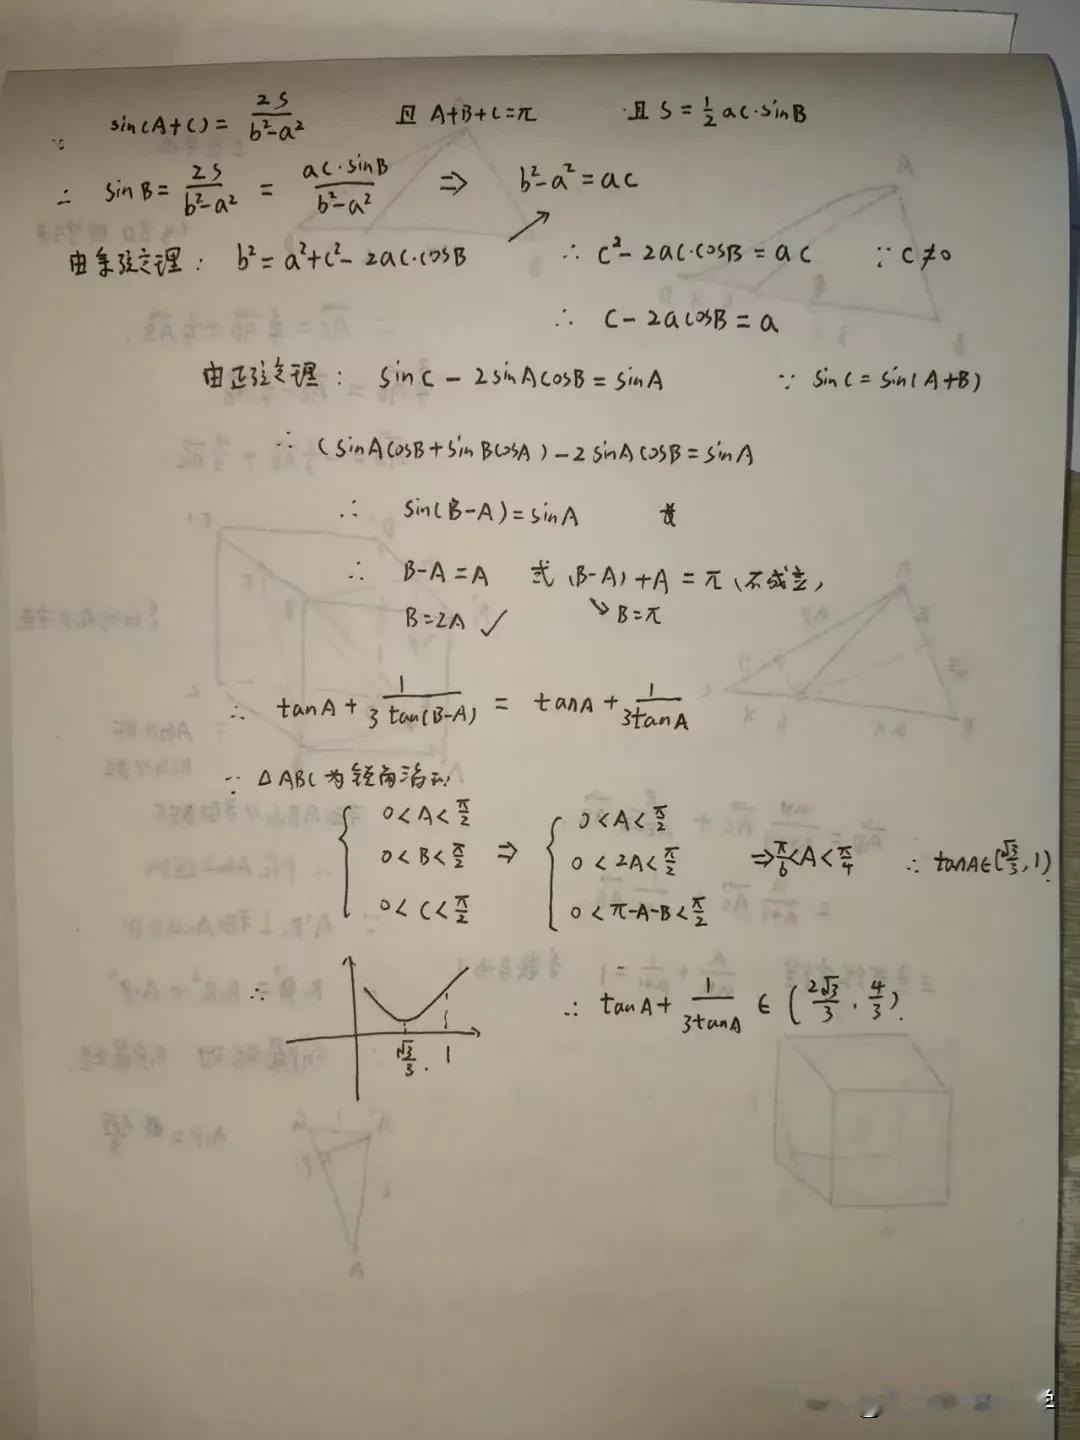 ∵ sin(A+C) = 2S/(b²-a²) 且 A+B+C=π 且 S = 1/2 ac·sinB
∴ sinB = 2S/(b²-a²) = ac·sinB/(b²-a²) ⇒ b²-a² = ac
由余弦定理: b² = a²+c²- 2ac·cosB ∴ c²- 2ac·cosB = ac ∵ c≠0
∴ c - 2acosB = a
由正弦定理: sinC - 2sinAcosB = sinA ∵ sinC = sin(A+B)
∴ (sinAcosB + sinBcosA) - 2sinAcosB = sinA
∴ sin(B-A) = sinA
∴ B-A = A 或 (B-A)+A = π (不成立)
B=2A ✓ ↘ B=π
∴ tanA + 1/(3tan(B-A)) = tanA + 1/(3tanA)
∵ △ABC为锐角
{ 0<A<π/2 ⇒ { 0<A<π/2
0<B<π/2 0<2A<π/2 ⇒ π/6<A<π/4 ∴ tanA∈(√3/3, 1)
0<C<π/2 0<π-A-B<π/2
∴ √3/3 1
∴ tanA + 1/(3tanA) ∈ (2√3/3, 4/3)